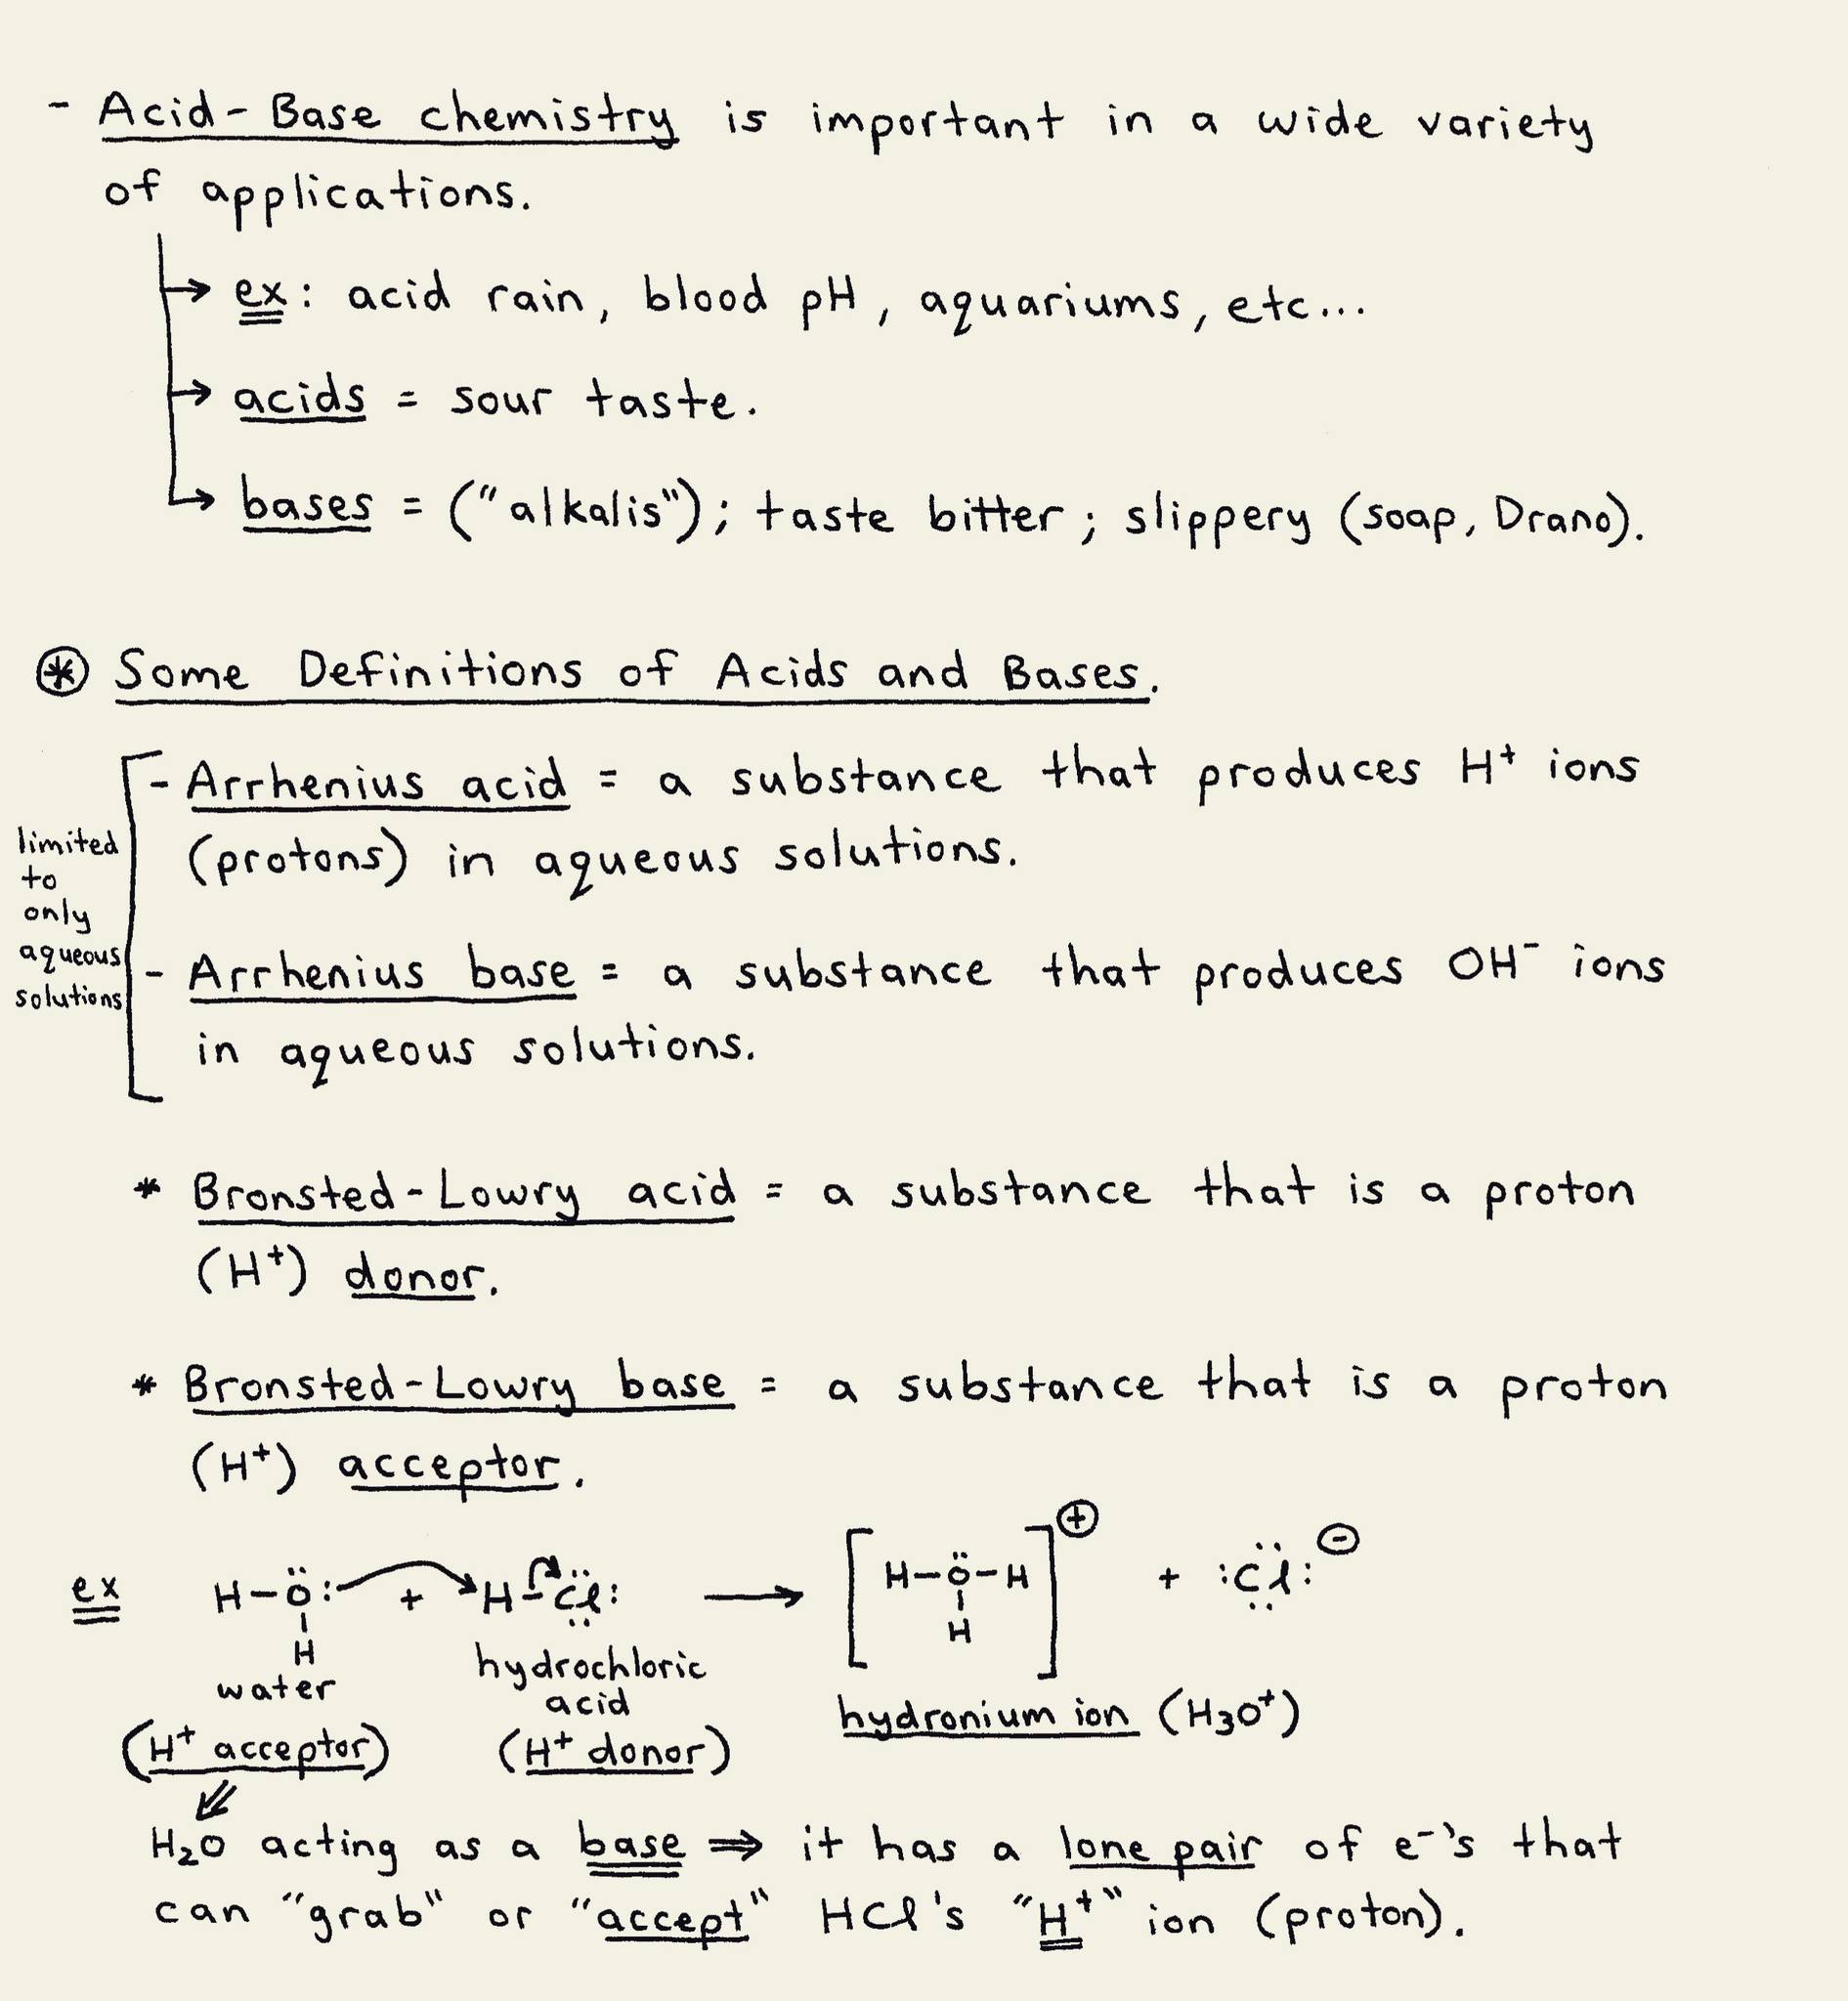 - Acid-Base chemistry is important in a wide variety
of applications.
→ ex: acid rain, blood pH, aquariums, etc...
→ acids = sour taste.
→ bases = ("alkalis"); taste bitter; slippery (soap, Drano).
⊛ Some Definitions of Acids and Bases.
- Arrhenius acid = a substance that produces H⁺ ions
(protons) in aqueous solutions.
limited
to
only
aqueous
solutions
- Arrhenius base = a substance that produces OH⁻ ions
in aqueous solutions.
* Bronsted-Lowry acid = a substance that is a proton
(H⁺) donor.
* Bronsted-Lowry base = a substance that is a proton
(H⁺) acceptor.
ex H-Ö: + H-Cl: → [H-Ö-H]⊕ + :Cl:⊖
H H
water hydrochloric
acid
hydronium ion (H₃O⁺)
(H⁺ acceptor) (H⁺ donor)
H₂O acting as a base ⇒ it has a lone pair of e⁻'s that
can "grab" or "accept" HCl's "H⁺" ion (proton).